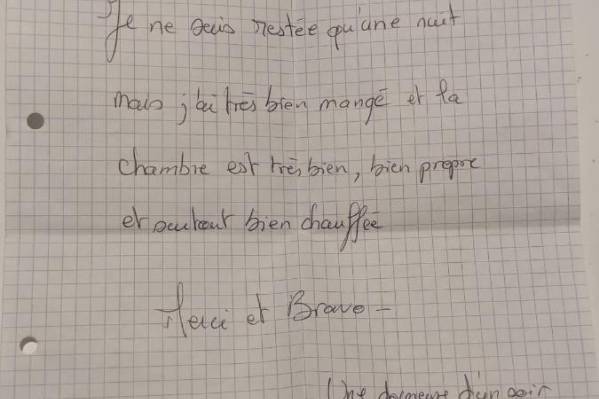 Je ne suis restée qu'une nuit
mais j'ai très bien mangé et la
chambre est très bien, bien propre
et surtout bien chauffée
Merci et Bravo -
Une d'un soir